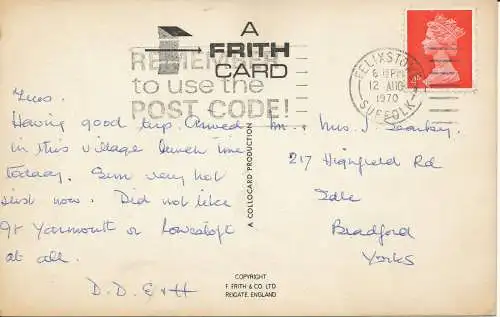 A
FRITH
CARD
REMEMBER
to use the
POST CODE!
FELIXSTOWE
6 PM
12 AUG
1970
SUFFOLK
Tues.
Having good trip. Arrived
in this village lunch time
today. Sun very hot
just now. Did not like
Gt Yarmouth or Lowestoft
at all.
D.D. E & H
A COLLOCARD PRODUCTION
Mr. Mrs J.
217 Highfield Rd
Idle
Bradford
Yorks
COPYRIGHT
F. FRITH & CO. LTD
REIGATE, ENGLAND